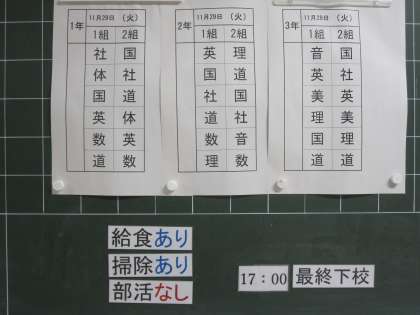 1年 11月29日 （火）
1組 2組
社 国
体 社
国 道
英 体
数 英
道 数
2年 11月29日 （火）
1組 2組
英 理
国 道
社 国
道 社
数 音
理 数
3年 11月29日 （火）
1組 2組
音 国
英 社
美 英
理 美
国 理
道 道
給食あり
掃除あり
部活なし
17：00 最終下校